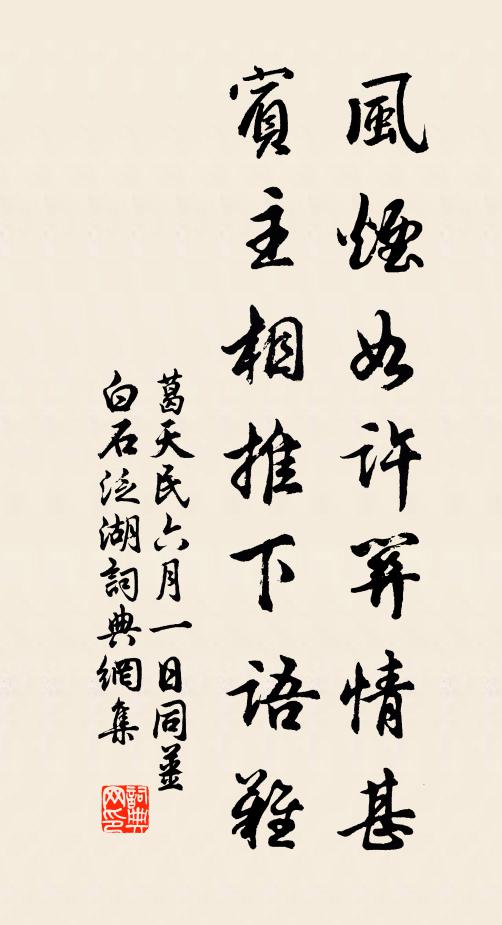 風煙如許關情甚
賓主相推下語難
葛天民六月一日同姜
白石泛湖詞典網集
詞典
网印